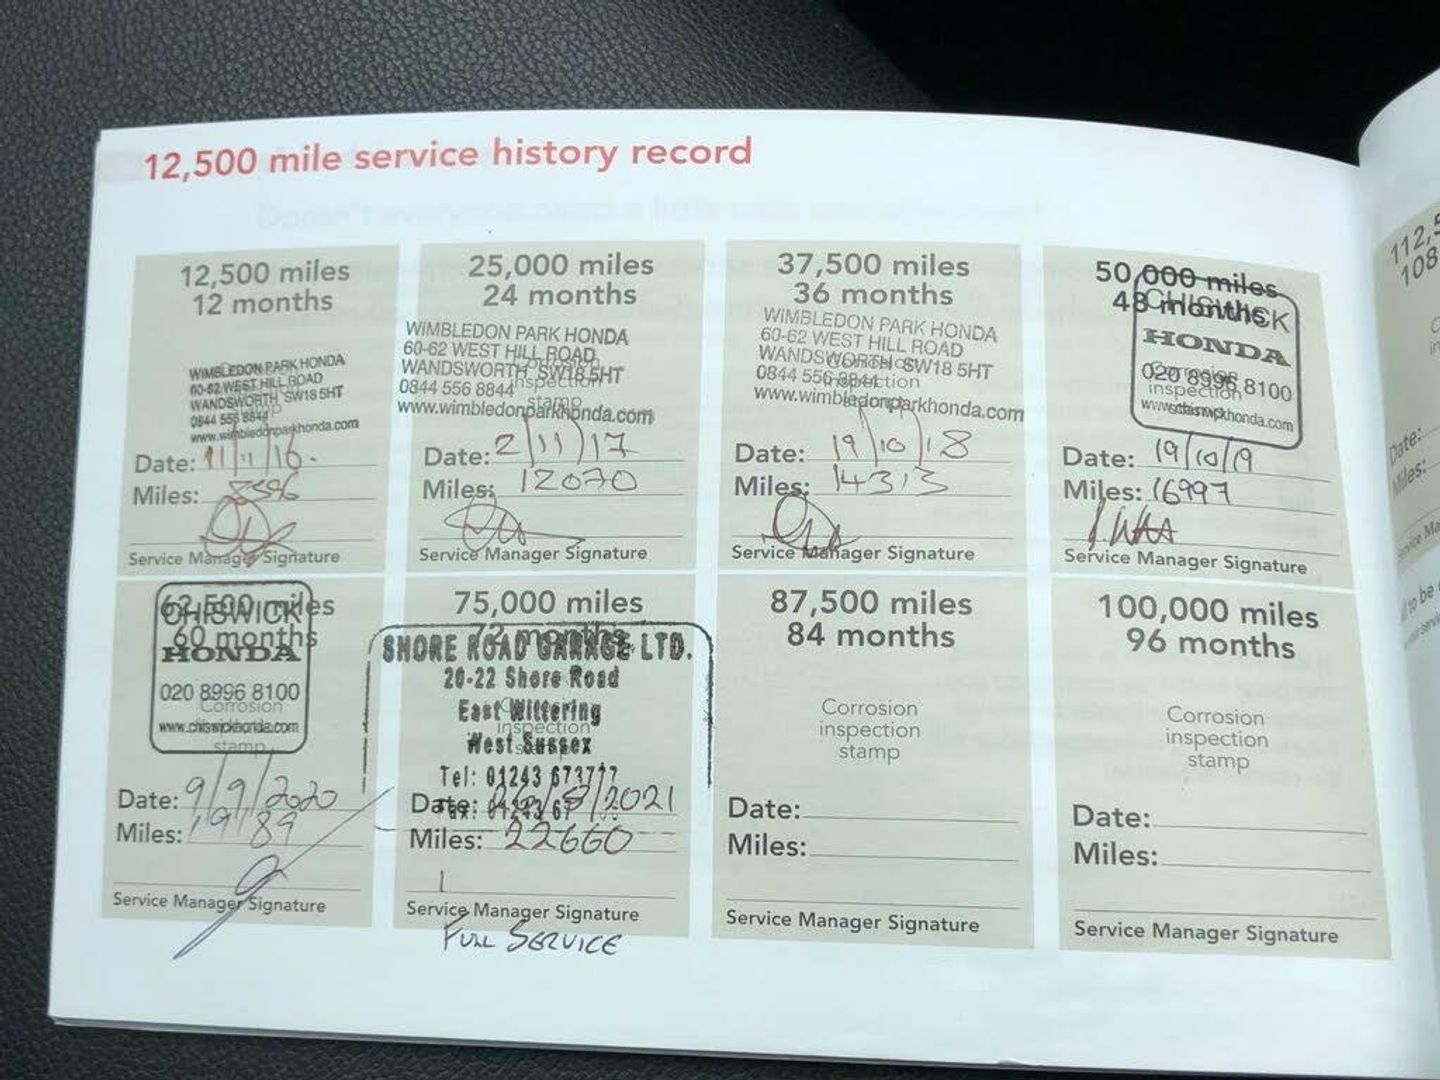 12,500 mile service history record
12,500 miles
12 months
WIMBLEDON PARK HONDA
60-62 WEST HILL ROAD
WANDSWORTH SW18 5HT
0844 556 8844
www.wimbledonparkhonda.com
Date: 11/11/16.
Miles:
Service Manager Signature
25,000 miles
24 months
WIMBLEDON PARK HONDA
60-62 WEST HILL ROAD
WANDSWORTH SW18 5HT
0844 556 8844
inspection
stamp
www.wimbledonparkhonda.com
Date: 2/11/17
Miles: 12070
Service Manager Signature
37,500 miles
36 months
WIMBLEDON PARK HONDA
60-62 WEST HILL ROAD
WANDSWORTH SW18 5HT
0844 556 8844
inspection
www.wimbledonparkhonda.com
Date: 19/10/18
Miles: 14313
Service Manager Signature
50,000 miles
48 months
CHISWICK
HONDA
Corrosion
020 8996 8100
inspection
www.chiswickhonda.com
Date: 19/10/19
Miles: 16997
Service Manager Signature
62,500 miles
CHISWICK
60 months
HONDA
020 8996 8100
Corrosion
www.chiswickhonda.com
stamp
Date: 9/9/2020
Miles:
Service Manager Signature
75,000 miles
72 months
SHORE ROAD GARAGE LTD.
20-22 Shore Road
East Wittering
inspection
West Sussex
Tel: 01243 673777
Fax: 01243 67
Date: /2021
Miles: 22660
Service Manager Signature
FULL SERVICE
87,500 miles
84 months
Corrosion
inspection
stamp
Date:
Miles:
Service Manager Signature
100,000 miles
96 months
Corrosion
inspection
stamp
Date:
Miles:
Service Manager Signature
112,5
108
Date:
Miles: